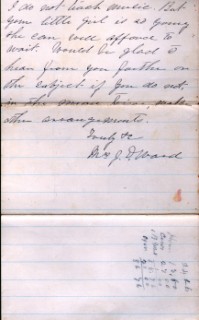 I do not teach music. But
your little girl is so young
she can well affoard to
wait. Would be glad to
hear from you farther on
the subject if you do not,
in the mean time, make
other arrangements.
Truly &c
Mrs J. D. Ward